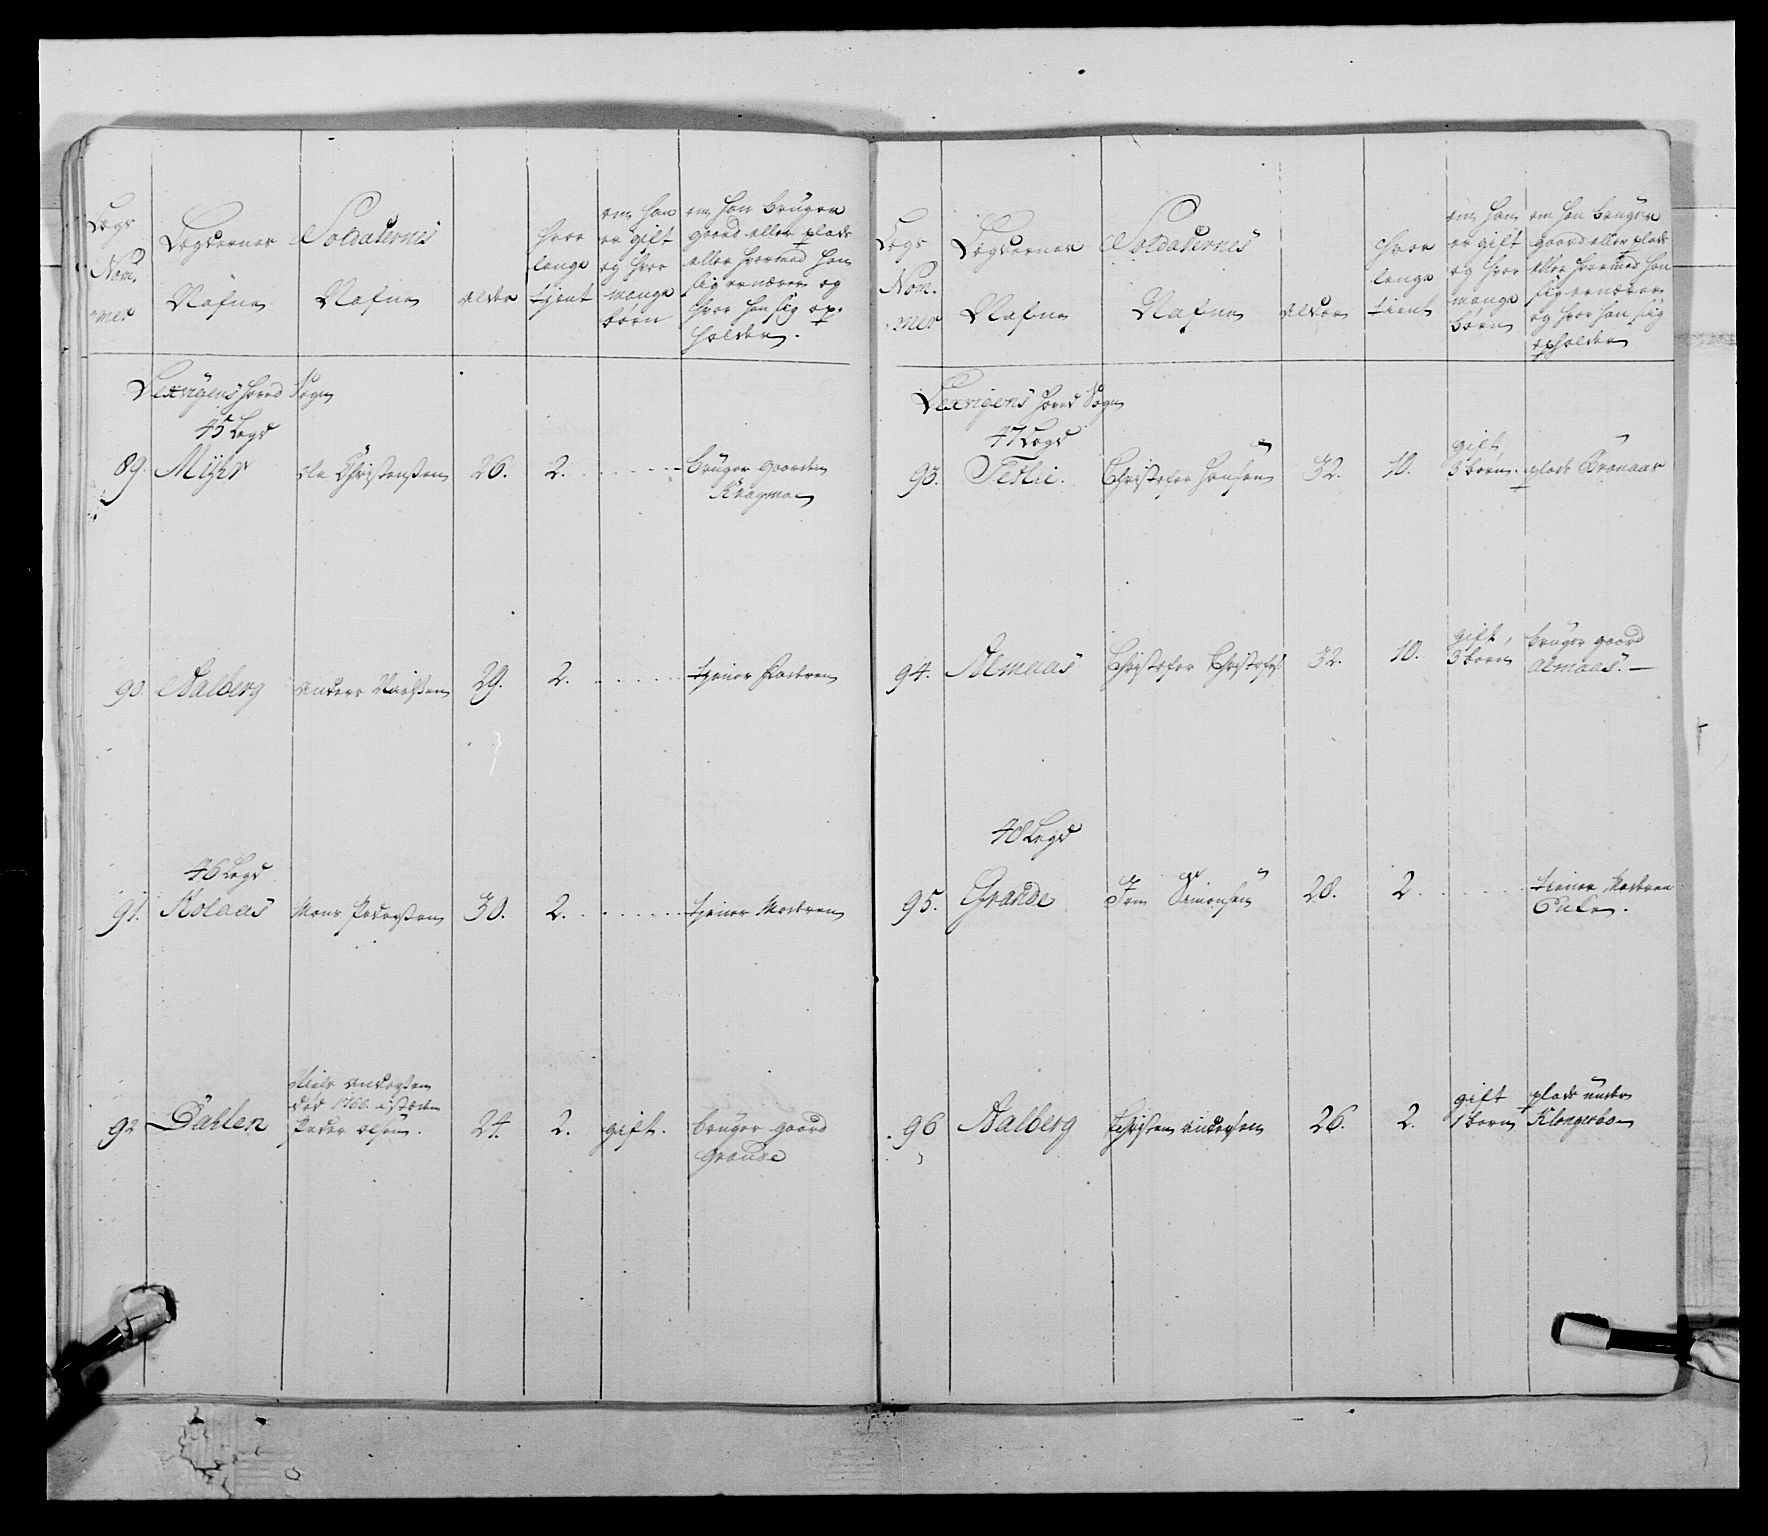 Legs
Nom,
mer
Legdernes
Nafne
Soldaternes
Nafne
alder
hvor
lenge
tjent
om han
er gift
og hvor
mange
børn
om han bruger
gaard eller plads
eller hvormed han
sig ernærer og
hvor han sig op-
holder.
Lexvigens hoved Sogn
45 Legd
89. Myhr Ole Christensen 26. 2. bruger gaarden
90. Aalberg Anders 29. 2. tjener
46 Legd
91. Kolaas Mons Pedersen 30. 2. tjener
92 Dahlen Niels Andersen
død 1760. istæden
Peder Olsen. 24. 2. gift. bruger gaard
Grande
Legs
Nom.
mer
Legdernes
Nafne
Soldaternes
Nafne
alder
hvor
lenge
tient
om han
er gift
og hvor
mange
børn
om han bruger
gaard eller plads
eller hvormed han
sig ernærer,
og hvor han sig
opholder
Lexvigens hoved Sogn
47 Legd
93. Tetlie. Christofer Hansen 32. 10. gift,
3 børn. plads
94. Almaas Christofer Christofers: 32. 10. gift,
3 børn bruger gaard
Almaas. —
48 Legd
95. Grande Jon Simonsen 28. 2. tiener
96 Aalberg Christen Andersen 26. 2. gift
1 barn plads under